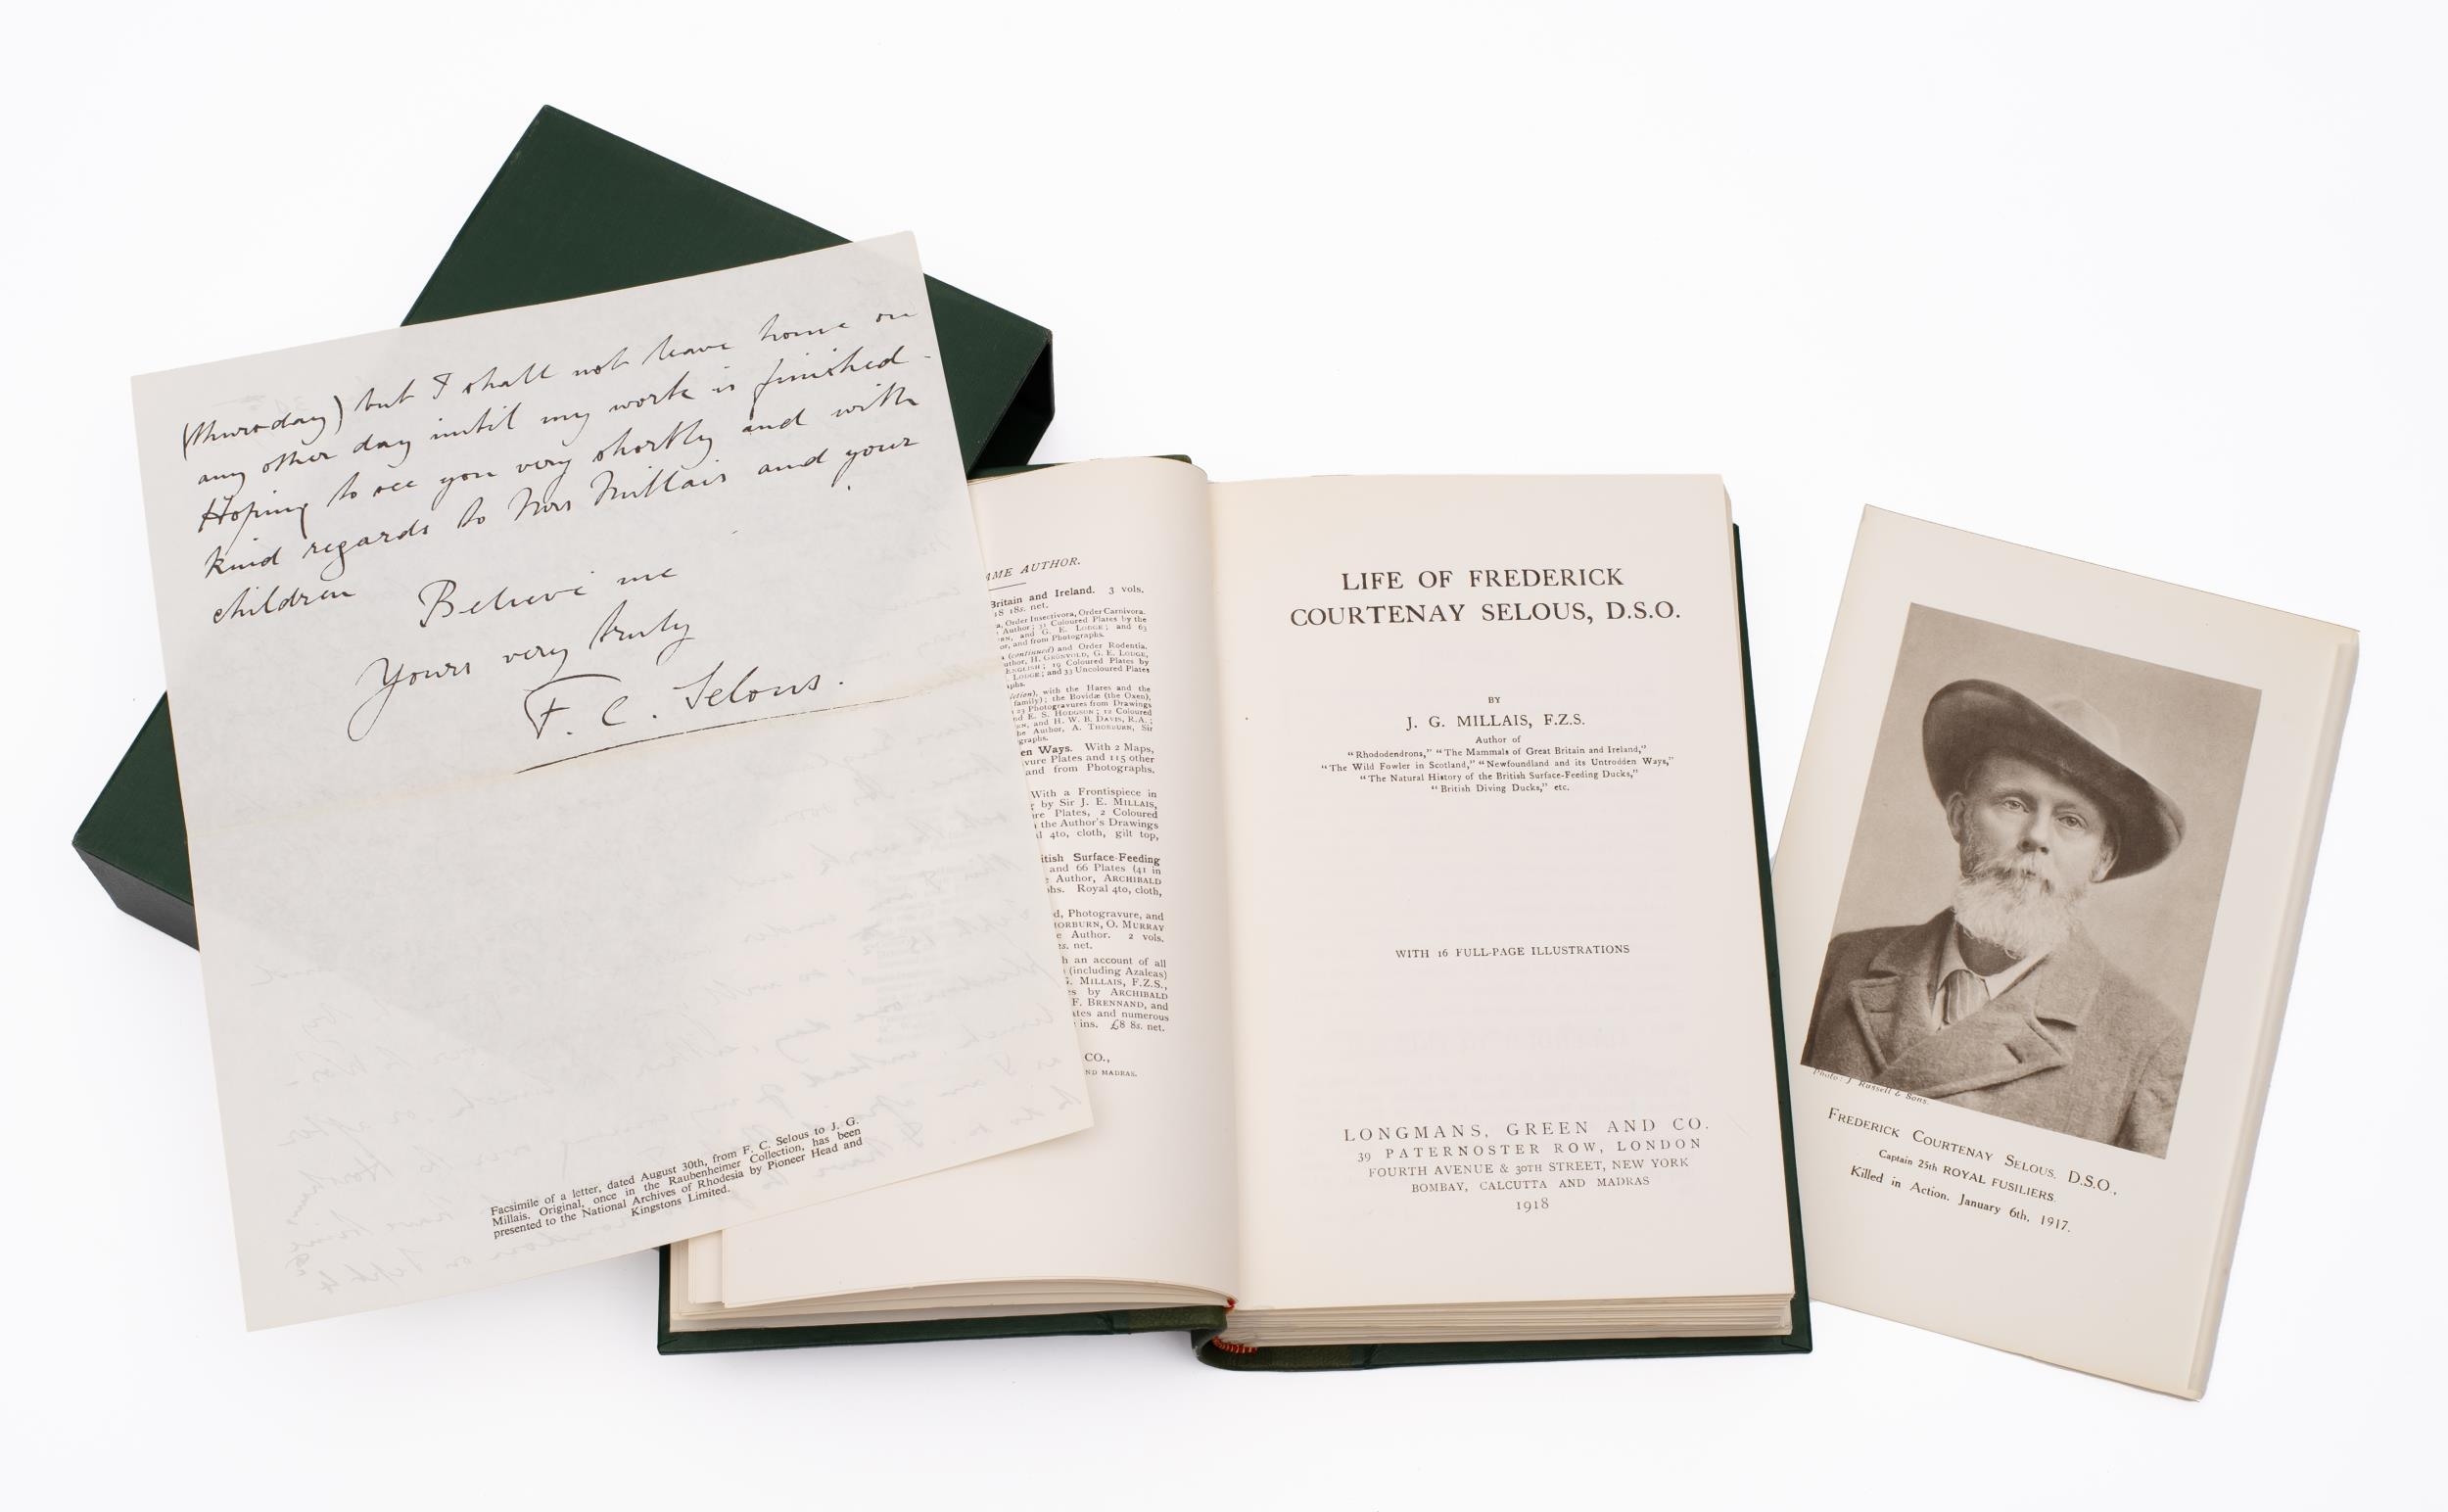 (Thursday) but I shall not leave home on
any other day until my work is finished -
Hoping to see you very shortly and with
kind regards to Mrs Millais and your
children
Believe me
Yours very truly
F. C. Selous.
Facsimile of a letter, dated August 30th, from F. C. Selous to J. G.
Millais. Original, once in the Raubenheimer Collection, has been
presented to the National Archives of Rhodesia by Pioneer Head and
Kingstons Limited.
AME AUTHOR.
Britain and Ireland. 3 vols.
18 18s. net.
a, Order Insectivora, Order Carnivora.
Author; 31 Coloured Plates by the
and G. E. LODGE; and 63
or, and from Photographs.
a (continued) and Order Rodentia.
uthor, H. GRÖNVOLD, G. E. LODGE,
ENGLISH; 19 Coloured Plates by
LODGE; and 33 Uncoloured Plates
aphs.
with the Hares and the
family); the Bovidæ (the Oxen),
23 Photogravures from Drawings
nd E. S. HODGSON; 12 Coloured
and H. W. B. DAVIS, R.A.;
he Author, A. THORBURN, Sir
graphs.
en Ways. With 2 Maps,
vure Plates and 115 other
and from Photographs.
With a Frontispiece in
by Sir J. E. MILLAIS,
re Plates, 2 Coloured
the Author's Drawings
4to, cloth, gilt top,
itish Surface-Feeding
and 66 Plates (41 in
Author, ARCHIBALD
hs. Royal 4to, cloth,
d, Photogravure, and
HORBURN, O. MURRAY
e Author. 2 vols.
s. net.
h an account of all
(including Azaleas)
G. MILLAIS, F.Z.S.,
es by ARCHIBALD
F. BRENNAND, and
ates and numerous
ins. £8 8s. net.
CO.,
ND MADRAS.
LIFE OF FREDERICK
COURTENAY SELOUS, D.S.O.
BY
J. G. MILLAIS, F.Z.S.
Author of
"Rhododendrons," "The Mammals of Great Britain and Ireland,"
"The Wild Fowler in Scotland," "Newfoundland and its Untrodden Ways,"
"The Natural History of the British Surface-Feeding Ducks,"
"British Diving Ducks," etc.
WITH 16 FULL-PAGE ILLUSTRATIONS
LONGMANS, GREEN AND CO.
39 PATERNOSTER ROW, LONDON
FOURTH AVENUE & 30TH STREET, NEW YORK
BOMBAY, CALCUTTA AND MADRAS
1918
Photo: J Russell & Sons.
FREDERICK COURTENAY SELOUS, D.S.O.,
Captain 25th ROYAL FUSILIERS.
Killed in Action, January 6th, 1917.